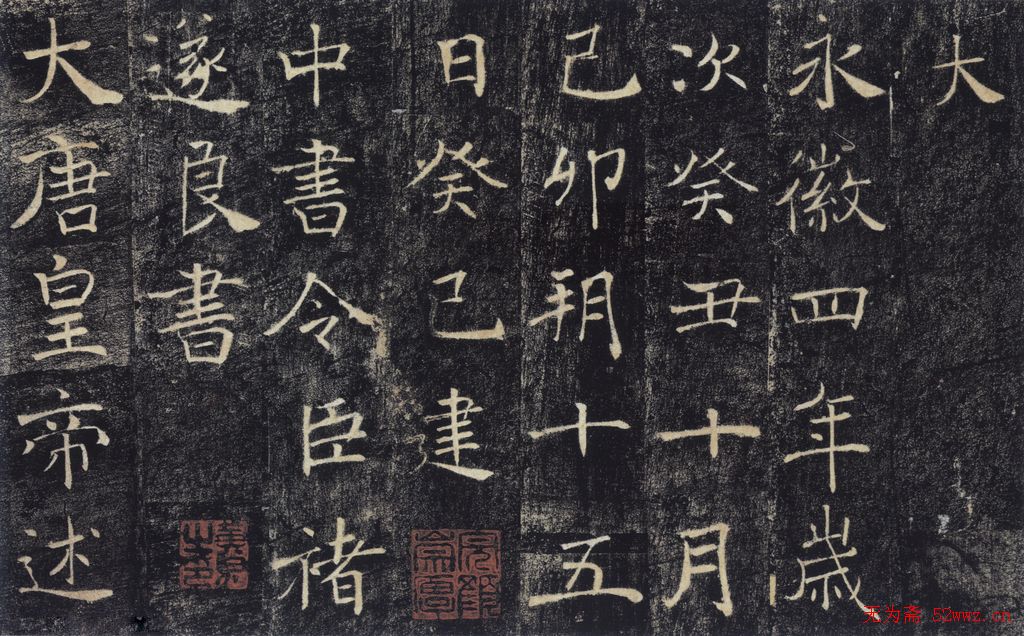 大
永徽四年歲
次癸丑十月
己卯朔十五
日癸巳建
中書令臣褚
遂良書
大唐皇帝述
无为斋 52wwz.cn